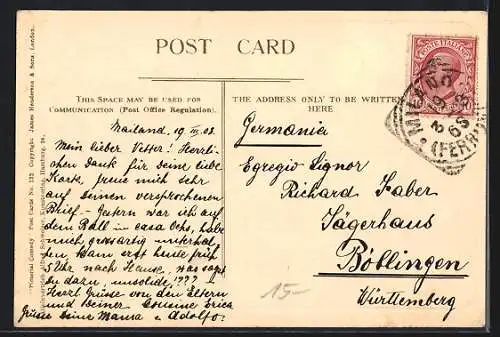 POST CARD
THIS SPACE MAY BE USED FOR
COMMUNICATION (Post Office Regulation).
THE ADDRESS ONLY TO BE WRITTEN
HERE
Mailand, 19 III 08.
Mein lieber Vetter! Herzli-
chen Dank für Deine liebe
Karte, freue mich sehr
auf Deinen versprochenen
Brief. - Gestern war ich auf
dem Ball in casa Ochs, habe
mich grossartig unterhal-
ten. Kam erst heute früh
5 Uhr nach Hause, was sagst
Du dazu, unsolide???
Herzl Grüsse von den Eltern
und Deiner Cousine Erica
Grüsse Deine Mama u Adolfo.
Germania
Egregio Signor
Richard Faber
Jägerhaus
Böblingen
Württemberg
15-
"Pictorial Comedy" Post Cards No. 132 Copyright James Henderson & Sons, London.
POSTE ITALIANE
MILANO
(FERROVIA)